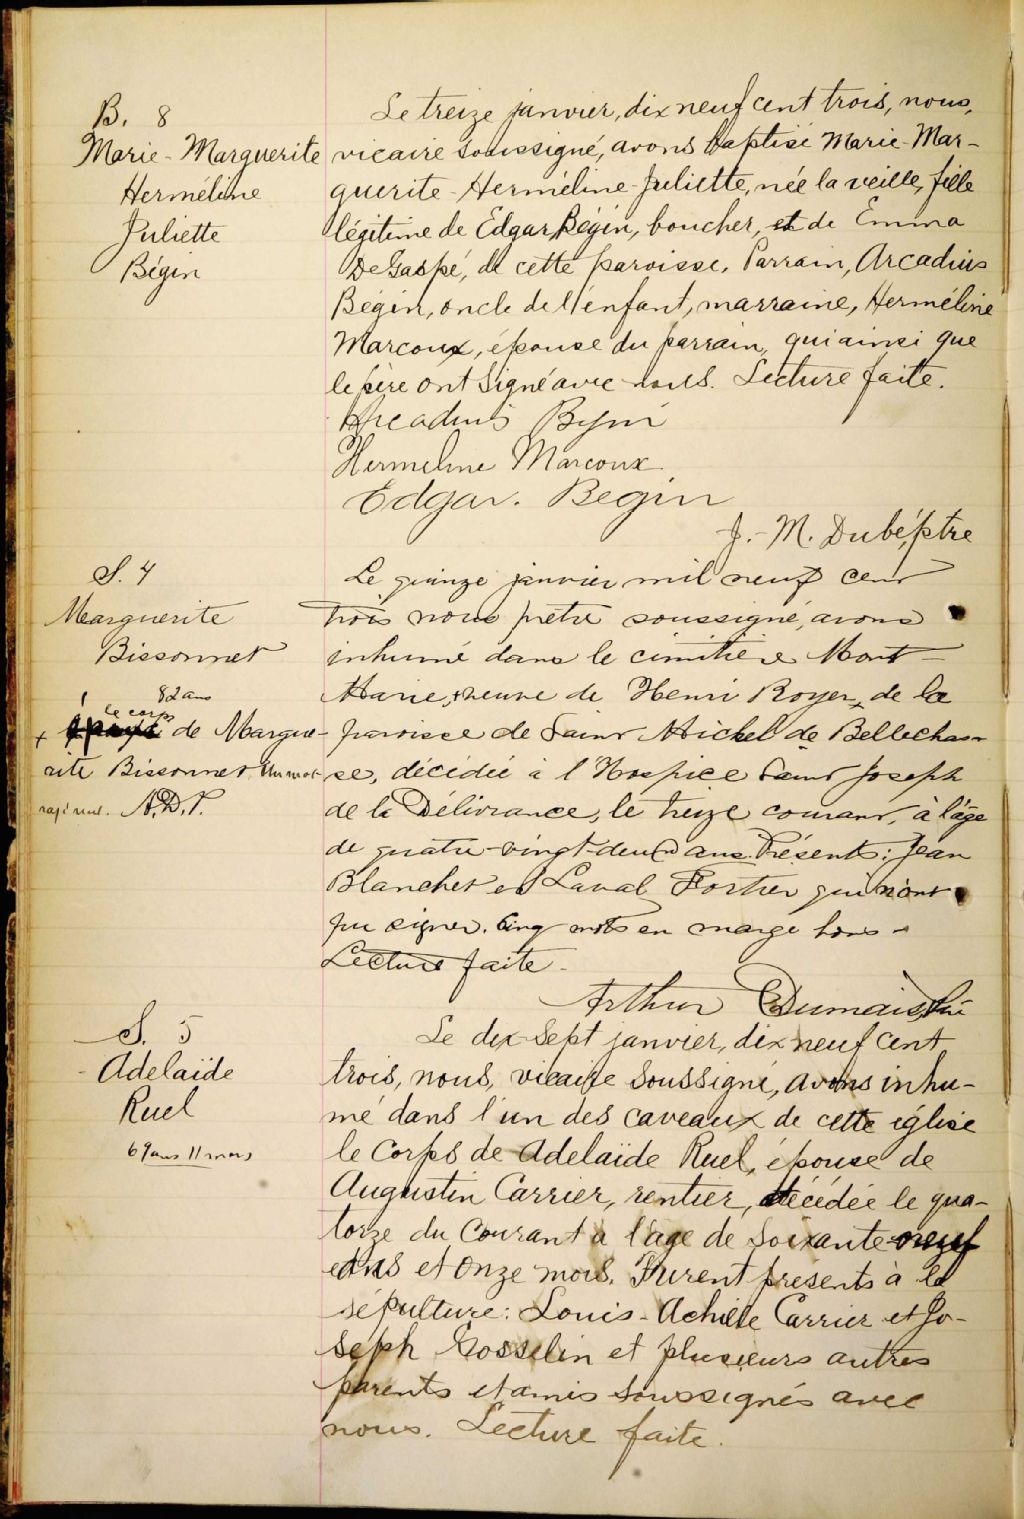 B. 8
Marie-Marguerite
Herméline
Juliette
Bégin
Le treize janvier, dix neuf cent trois, nous,
vicaire soussigné, avons baptisé Marie-Mar-
guerite-Herméline-Juliette, née la veille, fille
légitime de Edgar Bégin, boucher, et de Emma
DeGaspé, de cette paroisse. Parrain, Arcadius
Bégin, oncle de l'enfant, marraine, Herméline
Marcoux, épouse du parrain, qui ainsi que
le père ont signé avec nous. Lecture faite.
Arcadius Bégin
Hermeline Marcoux
Edgar. Begin
J.-M. Dubé, ptre
S. 4
Marguerite
Bissonnet
82 ans
le corps
+ de Margue-
rite Bissonnet. Un mot
rayé nul. A.D.P.
Le quinze janvier mil neuf cent
trois nous prêtre soussigné, avons
inhumé dans le cimitière Mont-
Marie, + veuve de Henri Royer, de la
paroisse de Saint Michel de Bellechas-
se, décédée à l'Hospice Saint Joseph
de la Délivrance, le treize courant, à l'âge
de quatre-vingt-deux ans. Présents: Jean
Blanchet et Laval Fortier qui n'ont
pu signer. Cinq mots en marge bons -
Lecture faite.
Arthur Dumais, ptre
S. 5
Adelaïde
Ruel
69 ans 11 mois
Le dix-sept janvier, dix neuf cent
trois, nous, vicaire soussigné, avons inhu-
mé dans l'un des caveaux de cette église
le corps de Adelaïde Ruel, épouse de
Augustin Carrier, rentier, décédée le qua-
torze du courant à l'âge de soixante-neuf
ans et onze mois. Furent présents à la
sépulture: Louis-Achille Carrier et Jo-
seph Gosselin et plusieurs autres
parents et amis soussignés avec
nous. Lecture faite.